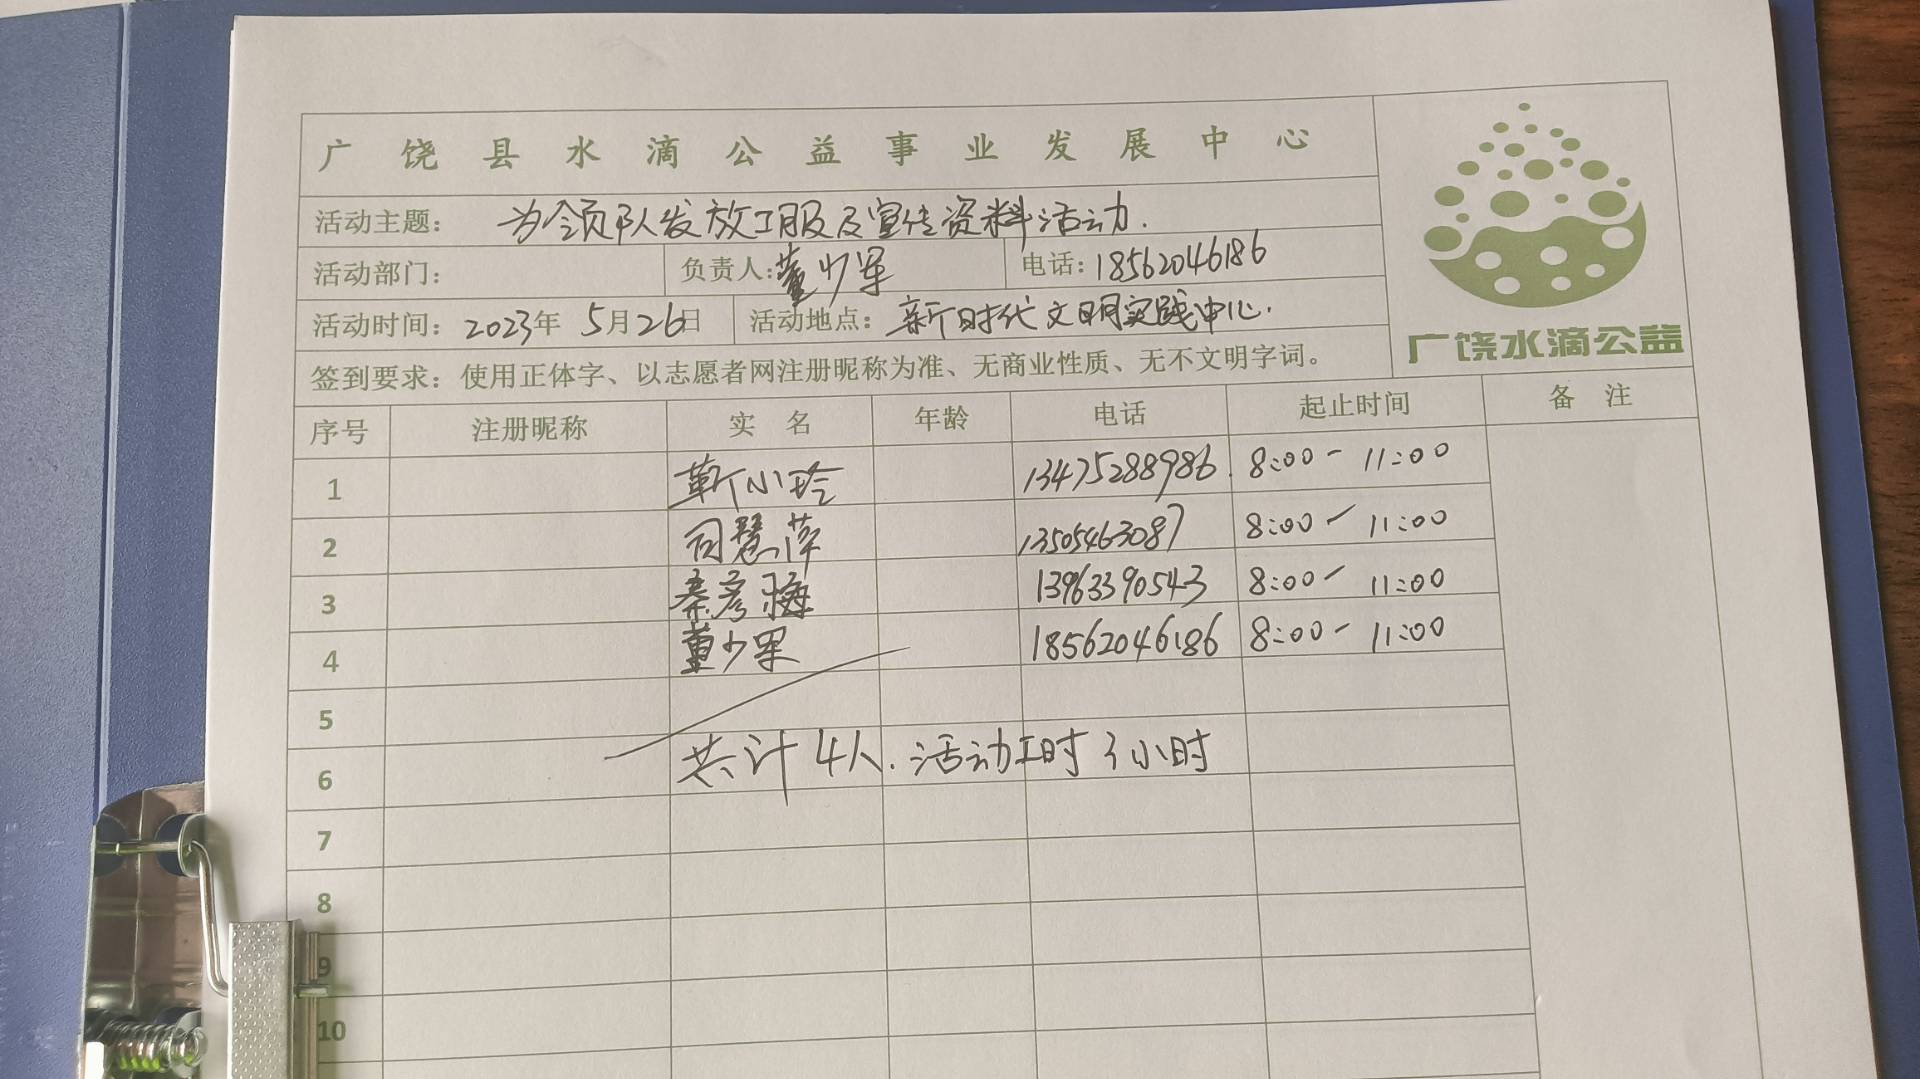 广饶县水滴公益事业发展中心
活动主题：为领队发放工服及宣传资料活动.
活动部门： 负责人:董少军 电话:18562046186
活动时间：2023年 5月26日 活动地点：新时代文明实践中心.
广饶水滴公益
签到要求：使用正体字、以志愿者网注册昵称为准、无商业性质、无不文明字词。
序号 注册昵称 实 名 年龄 电话 起止时间 备 注
1 靳小玲 13475288986 8:00- 11:00
2 13505463087 8:00- 11:00
3 秦彦梅 13963390543 8:00- 11:00
4 董少军 18562046186 8:00- 11:00
5
6 共计4人.活动工时3小时
7
8
9
10